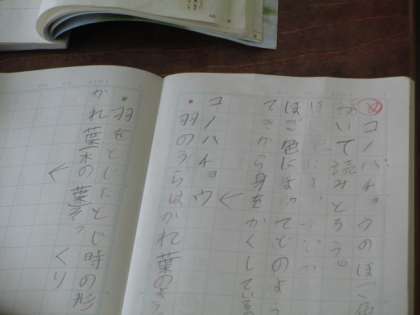 コノハチョウのほご色に
ついて読みとろう。
ほご色によってどのよう
てきから身をかくしている
コノハチョウ
・羽のうらはかれ葉のよう
・羽をとじたとじ時の形
かれ葉木の葉そっくり